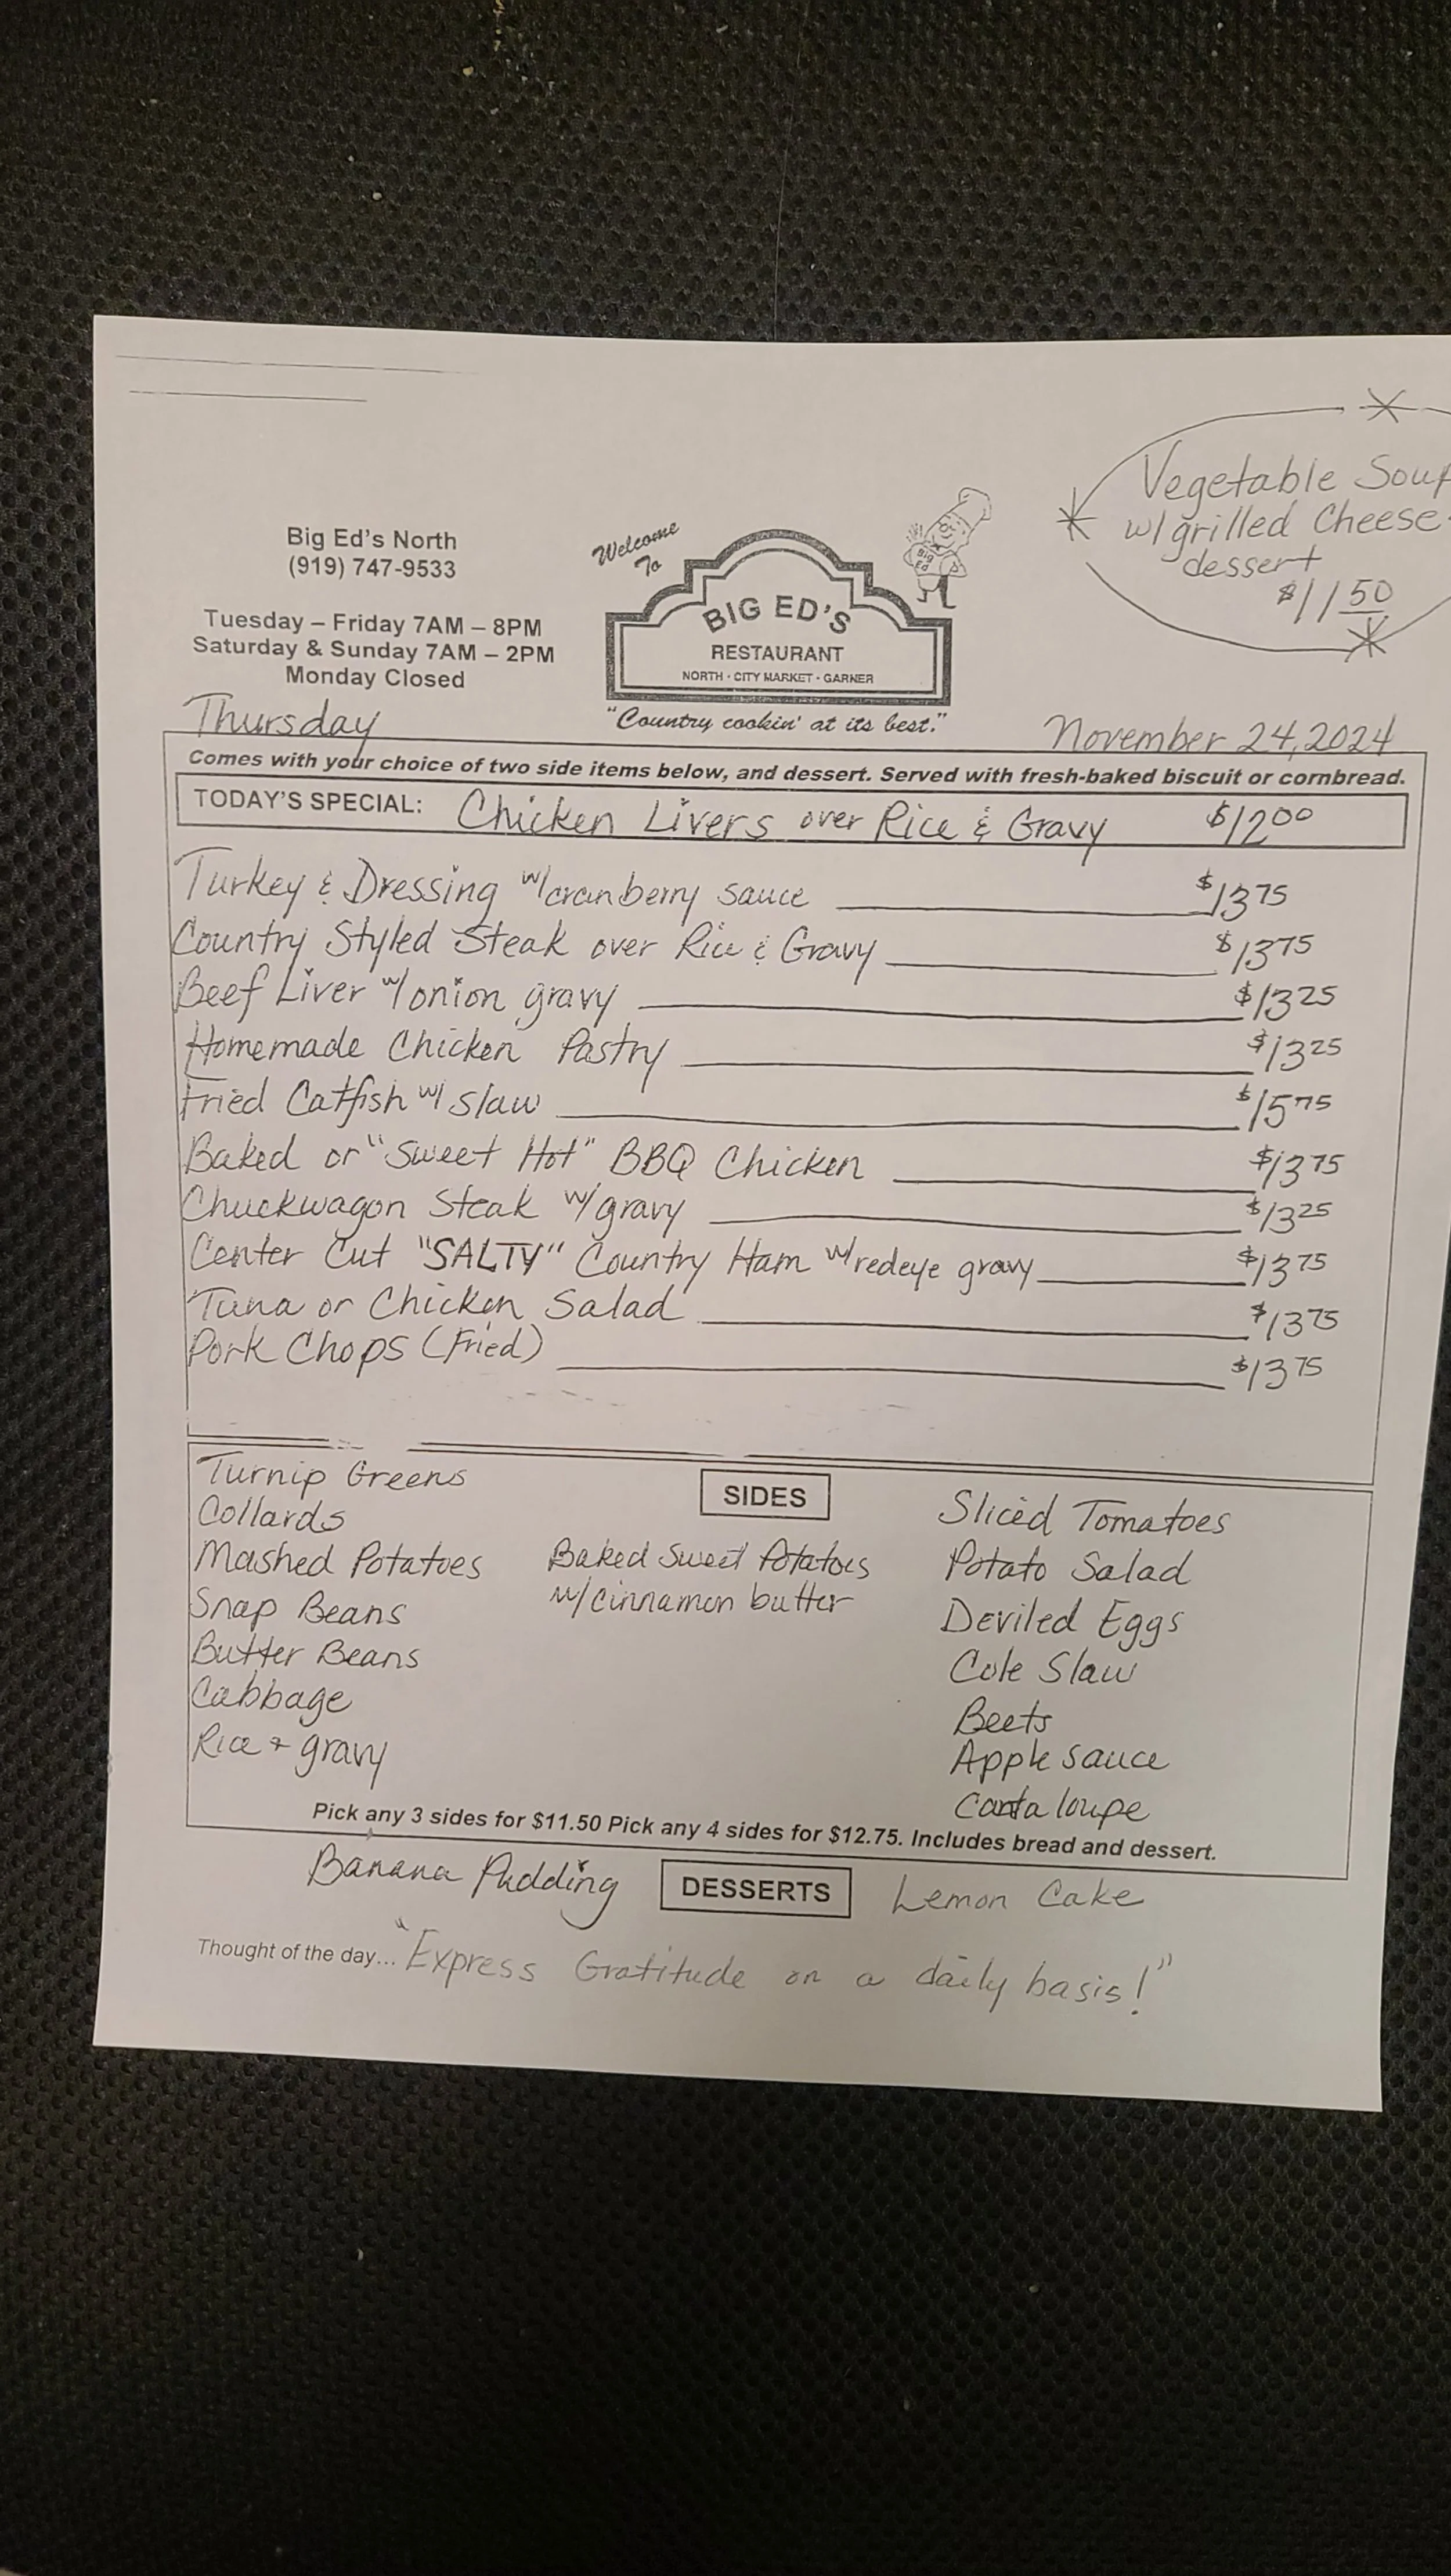 Vegetable Soup
w/ grilled Cheese
dessert
$11.50
Big Ed's North
(919) 747-9533
Tuesday – Friday 7AM – 8PM
Saturday & Sunday 7AM – 2PM
Monday Closed
Welcome
To
Big Ed
BIG ED'S
RESTAURANT
NORTH · CITY MARKET · GARNER
"Country cookin' at its best."
Thursday
November 24, 2024
Comes with your choice of two side items below, and dessert. Served with fresh-baked biscuit or cornbread.
TODAY'S SPECIAL: Chicken Livers over Rice & Gravy $12.00
Turkey & Dressing w/cranberry sauce $13.75
Country Styled Steak over Rice & Gravy $13.75
Beef Liver w/ onion gravy $13.25
Homemade Chicken Pastry $13.25
Fried Catfish w/ slaw $15.75
Baked or "Sweet Hot" BBQ Chicken $13.75
Chuckwagon Steak w/ gravy $13.25
Center Cut "SALTY" Country Ham w/ redeye gravy $13.75
Tuna or Chicken Salad $13.75
Pork Chops (Fried) $13.75
SIDES
Turnip Greens
Collards
Mashed Potatoes
Snap Beans
Butter Beans
Cabbage
Rice + gravy
Baked Sweet Potatoes
w/ cinnamon butter
Sliced Tomatoes
Potato Salad
Deviled Eggs
Cole Slaw
Beets
Apple sauce
Cantaloupe
Pick any 3 sides for $11.50 Pick any 4 sides for $12.75. Includes bread and dessert.
Banana Pudding DESSERTS Lemon Cake
Thought of the day... "Express Gratitude on a daily basis!"